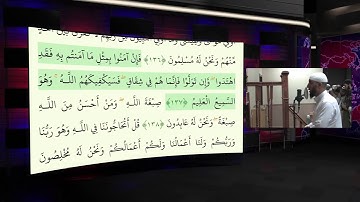 مِنْهُمْ وَنَحْنُ لَهُ مُسْلِمُونَ ﴿١٣٦﴾ فَإِنْ آمَنُوا بِمِثْلِ مَا آمَنتُم بِهِ فَقَدِ
اهْتَدَوا ۖ وَّإِن تَوَلَّوْا فَإِنَّمَا هُمْ فِي شِقَاقٍ ۖ فَسَيَكْفِيكَهُمُ اللَّـهُ ۚ وَهُوَ
السَّمِيعُ الْعَلِيمُ ﴿١٣٧﴾ صِبْغَةَ اللَّـهِ ۖ وَمَنْ أَحْسَنُ مِنَ اللَّـهِ
صِبْغَةً ۖ وَنَحْنُ لَهُ عَابِدُونَ ﴿١٣٨﴾ قُلْ أَتُحَاجُّونَنَا فِي اللَّـهِ وَهُوَ رَبُّنَا
وَرَبُّكُمْ وَلَنَا أَعْمَالُنَا وَلَكُمْ أَعْمَالُكُمْ وَنَحْنُ لَهُ مُخْلِصُونَ